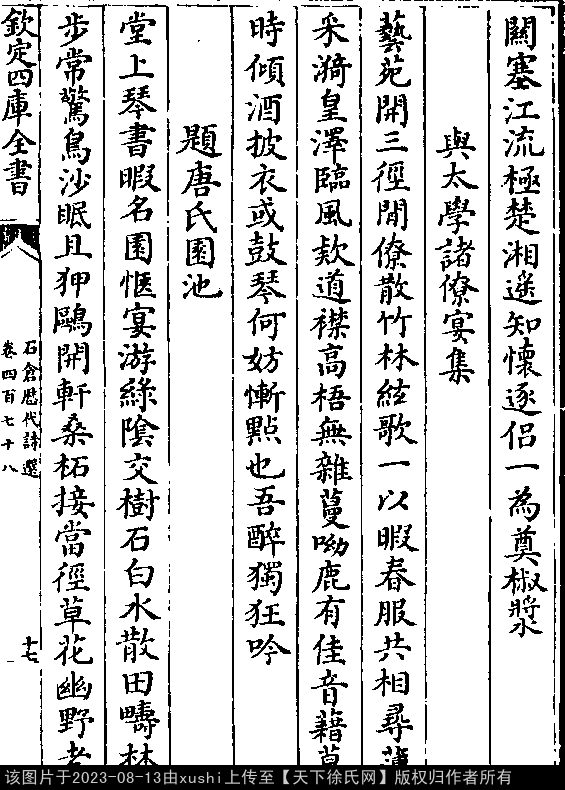 關塞江流極楚湘遥知懷逐侣一為奠椒漿
與太學諸僚宴集
藝苑開三徑閒僚散竹林絃歌一以暇春服共相尋薄
采漪皇澤臨風欵道襟高梧無雜蔓呦鹿有佳音藉草
時傾酒披衣或鼓琴何妨慚㸃也吾醉獨狂吟
題唐氏園池
堂上琴書暇名園愜宴游緑陰交樹石白水散田疇林
步常驚鳥沙眠且狎鷗開軒桑柘接當徑草花幽野老
石倉歴代詩選
卷四百七十八
十七
欽定四庫全書
该图片于2023-08-13由xushi上传至【天下徐氏网】版权归作者所有